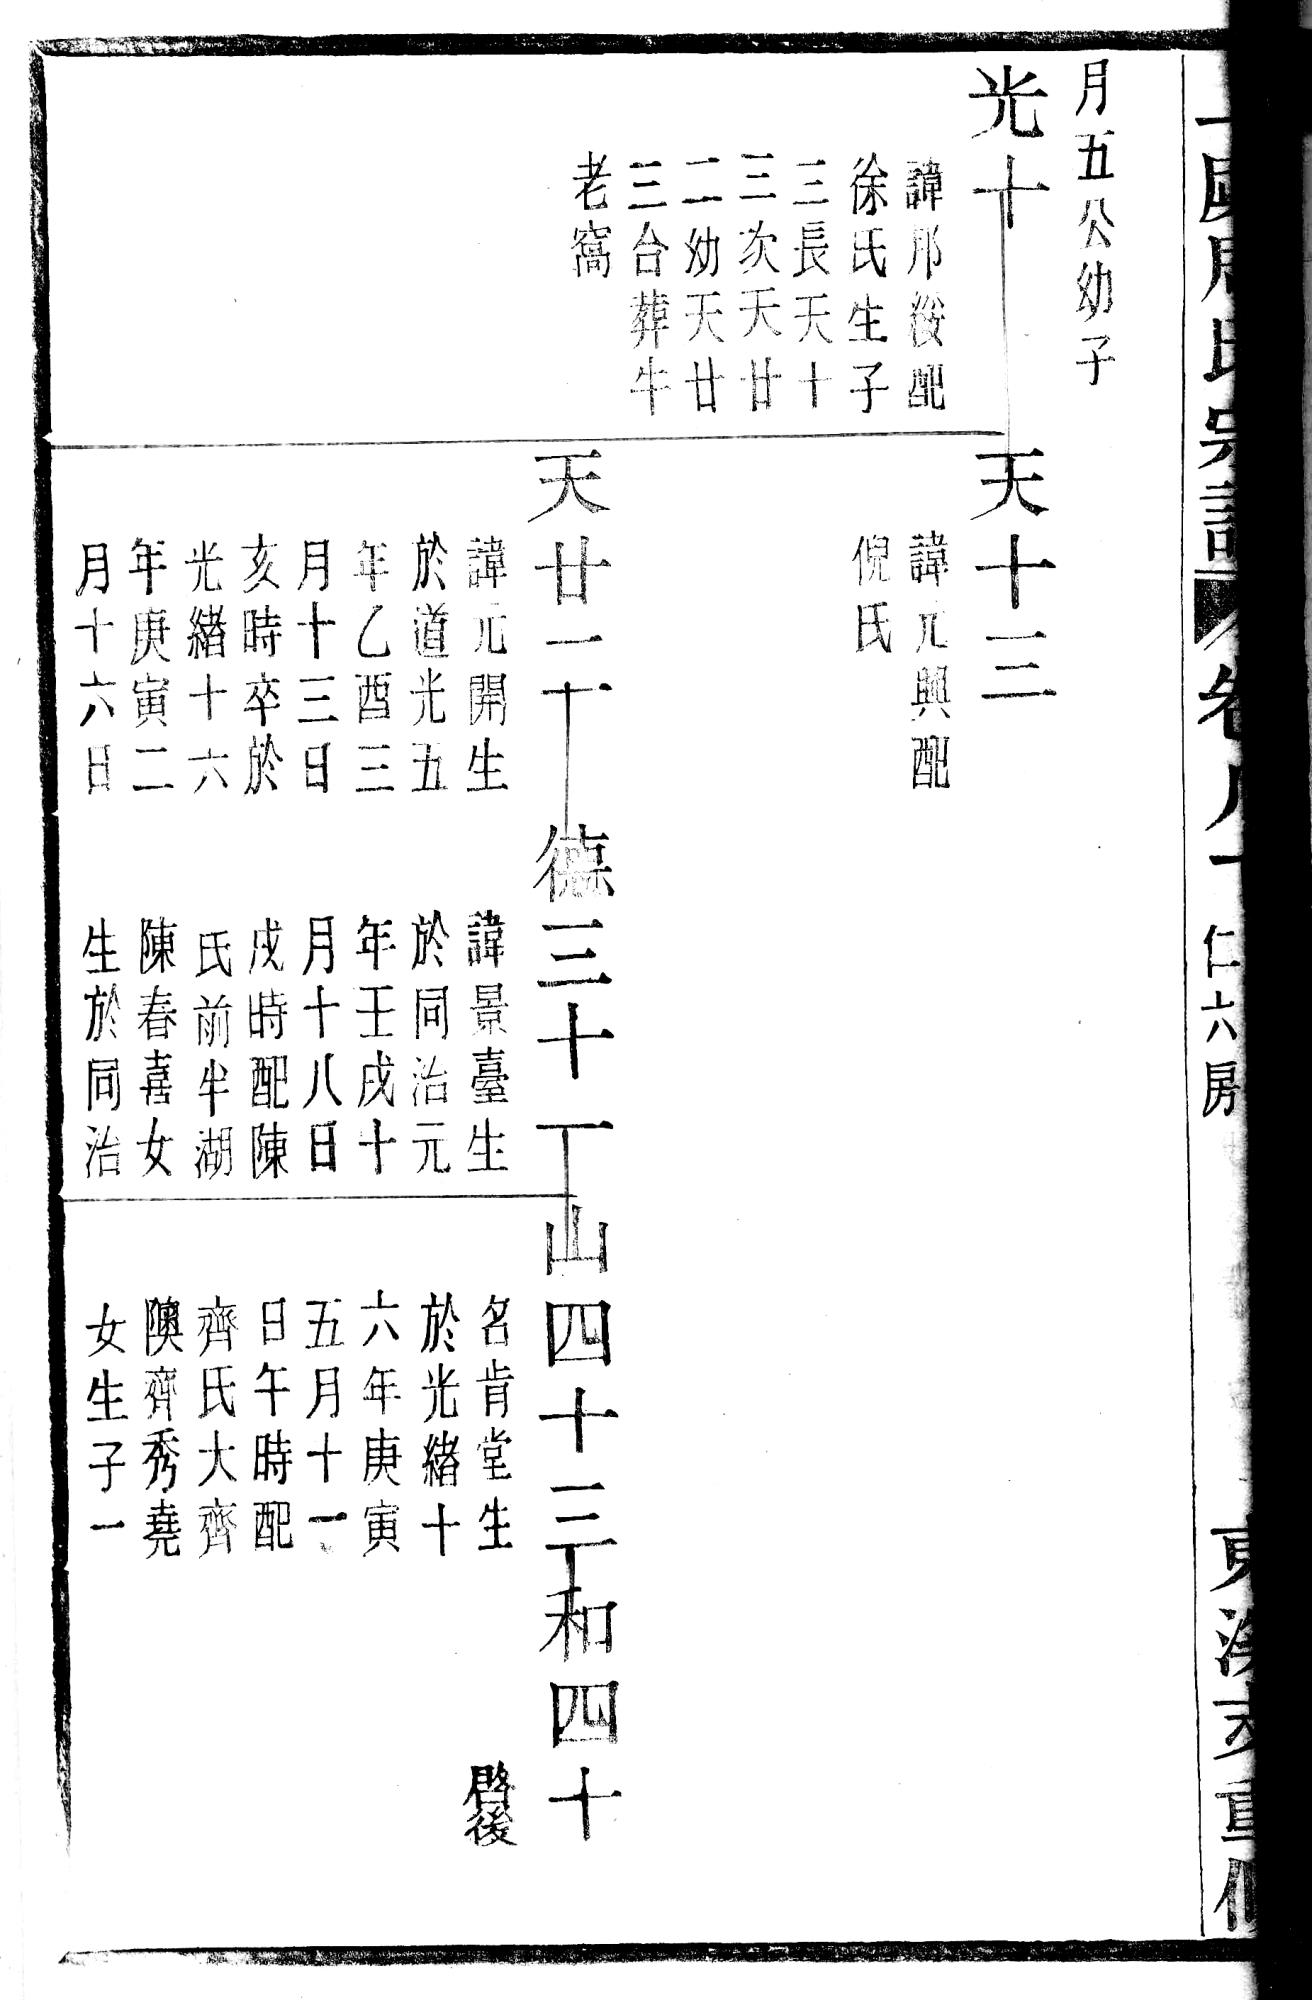 月五公幼子
光十
諱邦綏配
徐氏生子
三長天十
三次天廿
二幼天廿
三合葬牛
老窩
天十三
諱元興配
倪氏
天廿二
諱元開生
於道光五
年乙酉三
月十三日
亥時卒於
光緒十六
年庚寅二
月十六日
德三十一
諱景臺生
於同治元
年壬戌十
月十八日
戌時配陳
氏前半湖
陳春喜女
生於同治
山四十三
名肯堂生
於光緒十
六年庚寅
五月十一
日午時配
齊氏大齊
隩齊秀堯
女生子一
和四十
啓後
氏宗譜
仁六房